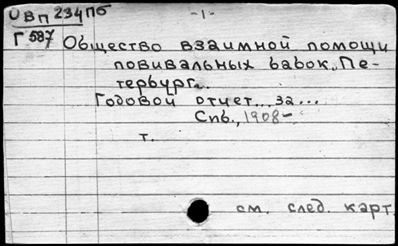 ОВП 234Пб -1-
Г587 Общество взаимной помощи
повивальных бабок, Пе-
тербург.
Годовой отчет... за...
Спб., 1908-
т.
см. след. карт.